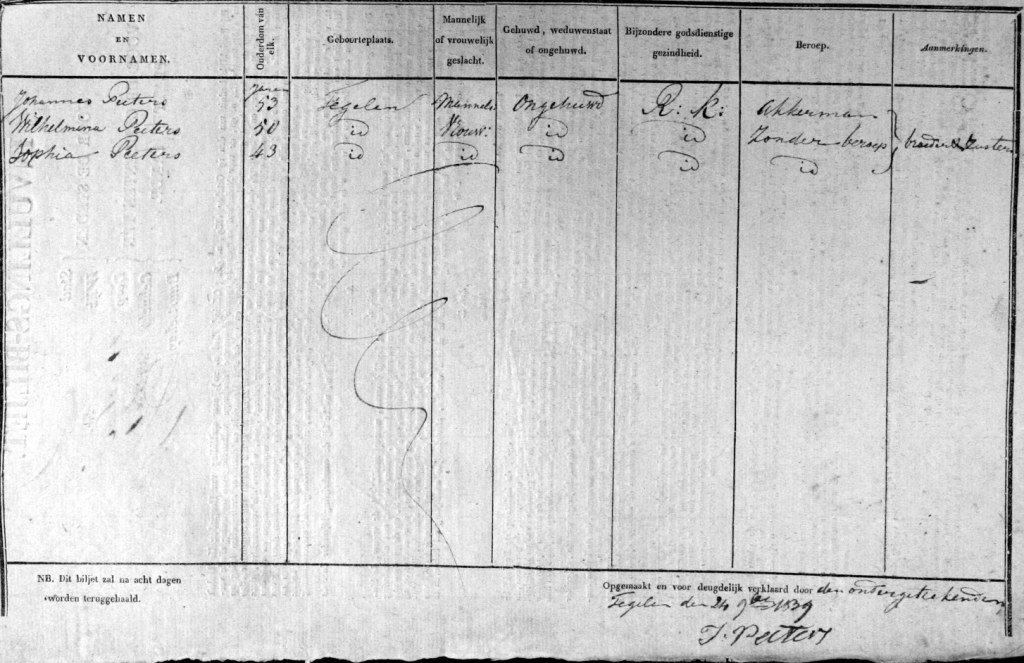 NAMEN
EN
VOORNAMEN.
Ouderdom van elk.
Geboorteplaats.
Mannelijk
of vrouwelijk
geslacht.
Gehuwd, weduwenstaat
of ongehuwd.
Bijzondere godsdienstige
gezindheid.
Beroep.
Aanmerkingen.
Jaren
Johannes Peeters 53 Tegelen Mannel: Ongehuwd R: K: Akkerman
Wilhelmina Peeters 50 id Vrouw: id id Zonder beroep broeder & Zusters
Sophia Peeters 43 id id id id id
NB. Dit biljet zal na acht dagen
worden teruggehaald.
Opgemaakt en voor deugdelijk verklaard door den ondergetekenden
Tegelen den 24 9ber 1839
J. Peeters